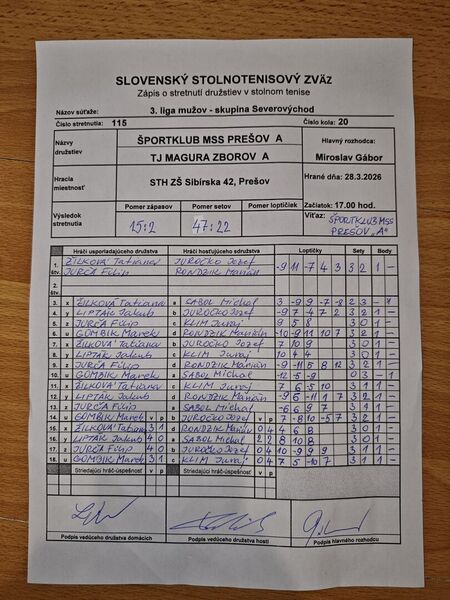 SLOVENSKÝ STOLNOTENISOVÝ ZVÄZ
Zápis o stretnutí družstiev v stolnom tenise
Názov súťaže: 3. liga mužov - skupina Severovýchod
Číslo stretnutia: 115 Číslo kola: 20
Názvy družstiev ŠPORTKLUB MSS PREŠOV A Hlavný rozhodca:
TJ MAGURA ZBOROV A Miroslav Gábor
Hracia miestnosť STH ZŠ Sibírska 42, Prešov Hrané dňa: 28.3.2026
Začiatok: 17.00 hod.
Výsledok stretnutia Pomer zápasov Pomer setov Pomer loptičiek Víťaz: ŠPORTKLUB MSS
15:2 47:22 PREŠOV „A"
Hráči usporiadajúceho družstva Hráči hosťujúceho družstva Loptičky Sety Body
1. štv. ŽILKOVÁ Tatiana JUROČKO Jozef -9 11 -7 4 3 3 2 1 -
JURČA Filip RONDZIK Marián
2. štv.
3. x ŽILKOVÁ Tatiana a SABOL Michal 3 -9 9 -7 -8 2 3 -
4. y LIPTÁK Jakub b JUROČKO Jozef -9 7 -4 7 2 3 2 1 -
5. z JURČA Filip c KLIM Juraj 9 5 8 3 0 1 -
6. u GOMBIK Marek d RONDZIK Marián -10 -9 11 10 7 3 2 1 -
7. x ŽILKOVÁ Tatiana b JUROČKO Jozef 7 10 9 3 0 1 -
8. y LIPTÁK Jakub c KLIM Juraj 10 4 4 3 0 1 -
9. z JURČA Filip d RONDZIK Marián -9 -11 5 8 12 3 2 1 -
10. u GOMBIK Marek a SABOL Michal -12 -5 -9 0 3 - 1
11. x ŽILKOVÁ Tatiana c KLIM Juraj 7 6 5 10 3 1 1 -
12. y LIPTÁK Jakub d RONDZIK Marián -9 6 -11 1 7 3 2 1 -
13. z JURČA Filip a SABOL Michal -6 6 9 7 3 1 1 -
14. u GOMBIK Marek v p b JUROČKO Jozef v p 7 -8 10 -5 7 3 2 1 -
15. x ŽILKOVÁ Tatiana 3 1 d RONDZIK Marián 0 4 4 6 8 3 0 1 -
16. y LIPTÁK Jakub 4 0 a SABOL Michal 2 2 8 10 8 3 0 1 -
17. z JURČA Filip 4 0 b JUROČKO Jozef 0 4 10 -9 9 9 3 1 1 -
18. u GOMBIK Marek 3 1 c KLIM Juraj 0 4 7 5 -10 7 3 1 1 -
Striedajúci hráč-úspešnosť v p Striedajúci hráč-úspešnosť v p
Podpis vedúceho družstva domácich Podpis vedúceho družstva hostí Podpis hlavného rozhodcu